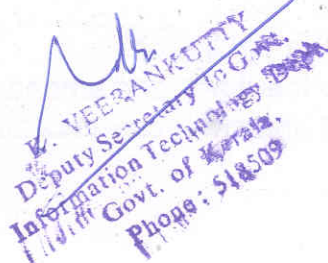 K. VEERANKUTTY
Deputy Secretary to Govt.
Information Technology Dept.
Govt. of Kerala.
Phone : 518509